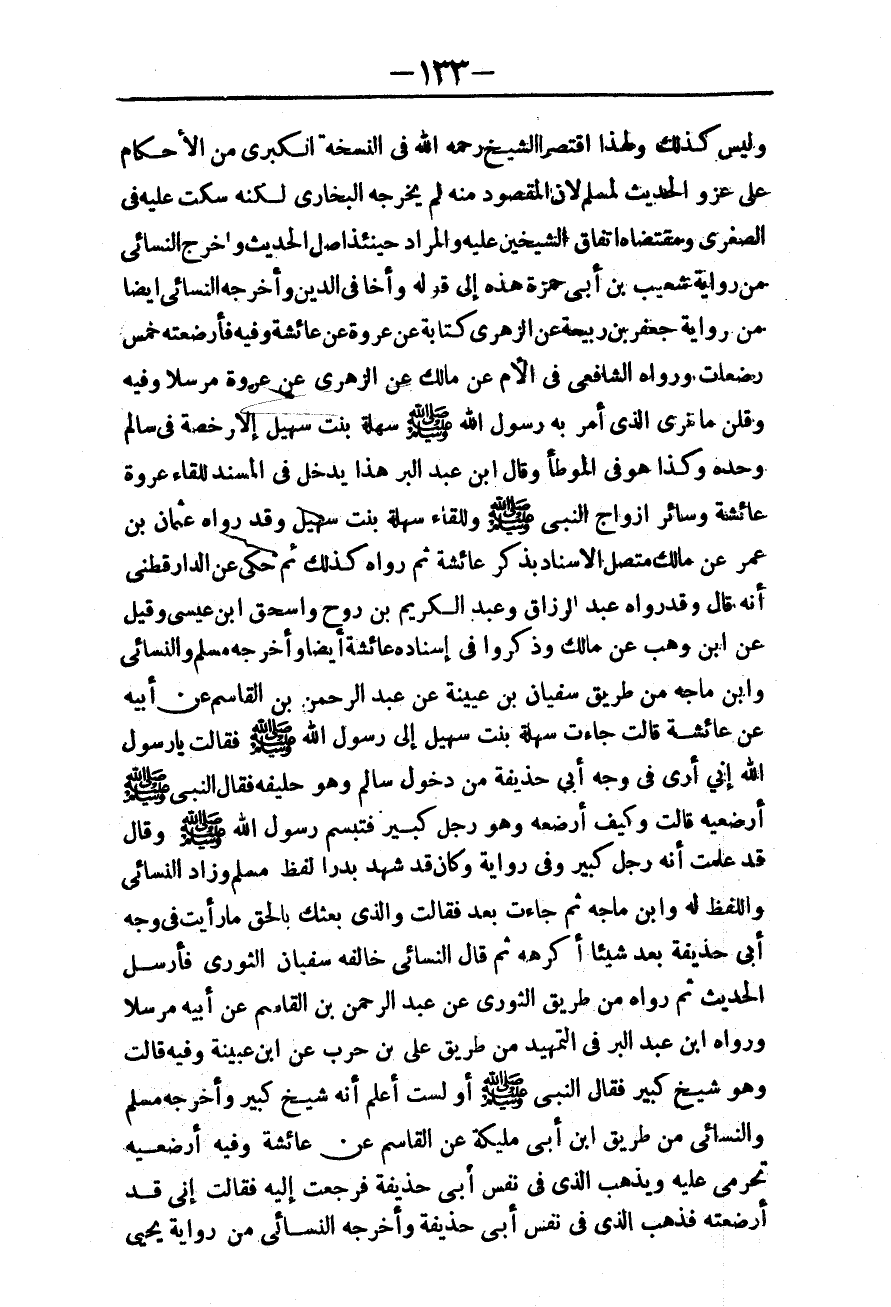 -١٣٣-
وليس كذلك ولهذا اقتصرالشيخ رحمه الله فى النسخة الكبرى من الأحكام
على عزو الحديث لمسلم لان المقصود منه لم يخرجه البخارى لكنه سكت عليه فى
الصغرى ومقتضاه اتفاق الشيخين عليه والمراد حينئذ اصل الحديث واخرج النسائى
من رواية شعيب بن أبى حمزة هذه إلى قوله وأخا فى الدين وأخرجه النسائى ايضا
من رواية جعفر بن ربيعة عن الزهرى كتابة عن عروة عن عائشة وفيه فأرضعته خمس
رضعات ورواه الشافعى فى الأم عن مالك عن الزهرى عن عروة مرسلا وفيه
وقلن مانرى الذى أمر به رسول الله ﷺ سهلة بنت سهيل إلا رخصة فى سالم
وحده وكذا هو فى الموطأ وقال ابن عبد البر هذا يدخل فى المسند للقاء عروة
عائشة وسائر ازواج النبى ﷺ وللقاء سهلة بنت سهيل وقد رواه عثمان بن
عمر عن مالك متصل الاسناد بذكر عائشة ثم رواه كذلك ثم حكى عن الدارقطنى
أنه قال وقد رواه عبد الرزاق وعبد الكريم بن روح واسحق ابن عيسى وقيل
عن ابن وهب عن مالك وذكروا فى إسناده عائشة أيضا وأخرجه مسلم والنسائى
وابن ماجه من طريق سفيان بن عيينة عن عبد الرحمن بن القاسم عن أبيه
عن عائشة قالت جاءت سهلة بنت سهيل إلى رسول الله ﷺ فقالت يارسول
الله إني أرى فى وجه أبي حذيفة من دخول سالم وهو حليفه فقال النبى ﷺ
أرضعيه قالت وكيف أرضعه وهو رجل كبير فتبسم رسول الله ﷺ وقال
قد علمت أنه رجل كبير وفى رواية وكان قد شهد بدرا لفظ مسلم وزاد النسائى
واللفظ له وابن ماجه ثم جاءت بعد فقالت والذى بعثك بالحق مارأيت فى وجه
أبى حذيفة بعد شيئا أكرهه ثم قال النسائى خالفه سفيان الثورى فأرسل
الحديث ثم رواه من طريق الثورى عن عبد الرحمن بن القاسم عن أبيه مرسلا
ورواه ابن عبد البر فى التمهيد من طريق على بن حرب عن ابن عيينة وفيه قالت
وهو شيخ كبير فقال النبى ﷺ أو لست أعلم أنه شيخ كبير وأخرجه مسلم
والنسائى من طريق ابن أبى مليكة عن القاسم عن عائشة وفيه أرضعيه
تحرمى عليه ويذهب الذى فى نفس أبى حذيفة فرجعت إليه فقالت إنى قد
أرضعته فذهب الذى فى نفس أبى حذيفة وأخرجه النسائى من رواية يحيى